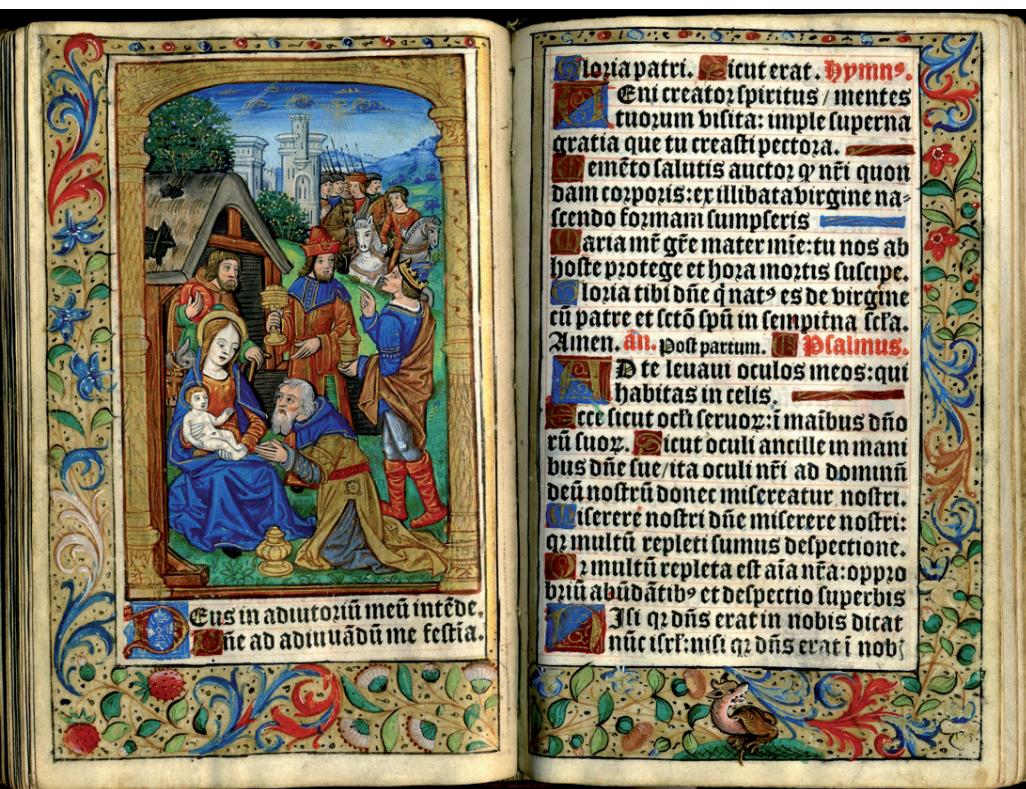 Deus in adiutoriū meū intēde.
Dñe ad adiuuādū me festīa.
Gloria patri. Sicut erat. Hymnꝰ.
VEni creator spiritus / mentes
tuorum visita: imple superna
gratia que tu creasti pectora.
Memēto salutis auctor ꝙ nr̄i quon
dam corporis: ex illibata virgine na⸗
scendo formam sumpseris
Maria mr̄ gr̄e mater mīe: tu nos ab
hoste protege et hora mortis suscipe.
Gloria tibi dñe q̇ natꝰ es de virgine
cū patre et sctō spū in sempitña scl̄a.
Amen. añ. Post partum. Psalmus.
AD te leuaui oculos meos: qui
habitas in celis.
Ecce sicut ocl̄i seruoꝝ: i maībus dño
rū suoꝝ. Sicut oculi ancille in mani
bus dñe sue / ita oculi nr̄i ad dominū
deū nostrū donec misereatur nostri.
Miserere nostri dñe miserere nostri:
qꝛ multū repleti sumus despectione.
Qꝛ multū repleta est aīa nr̄a: oppro
briū abūdātibꝰ et despectio superbis
NIsi qꝛ dñs erat in nobis dicat
nūc isrl̄: nisi qꝛ dñs erat ī nob